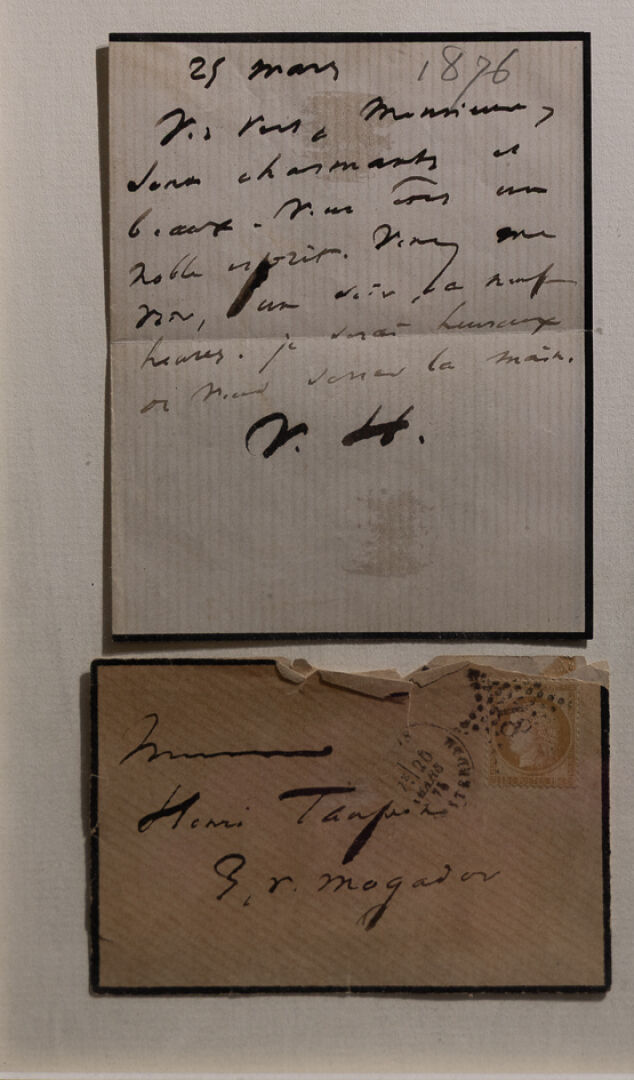 25 mars 1876
Vos vers, Monsieur,
sont charmants et
beaux. Vous êtes un
noble esprit. Venez me
voir, un soir, à neuf
heures. je serai heureux
de vous serrer la main.
V. H.
Monsieur
Henri
r. Mogador
26
MARS
76